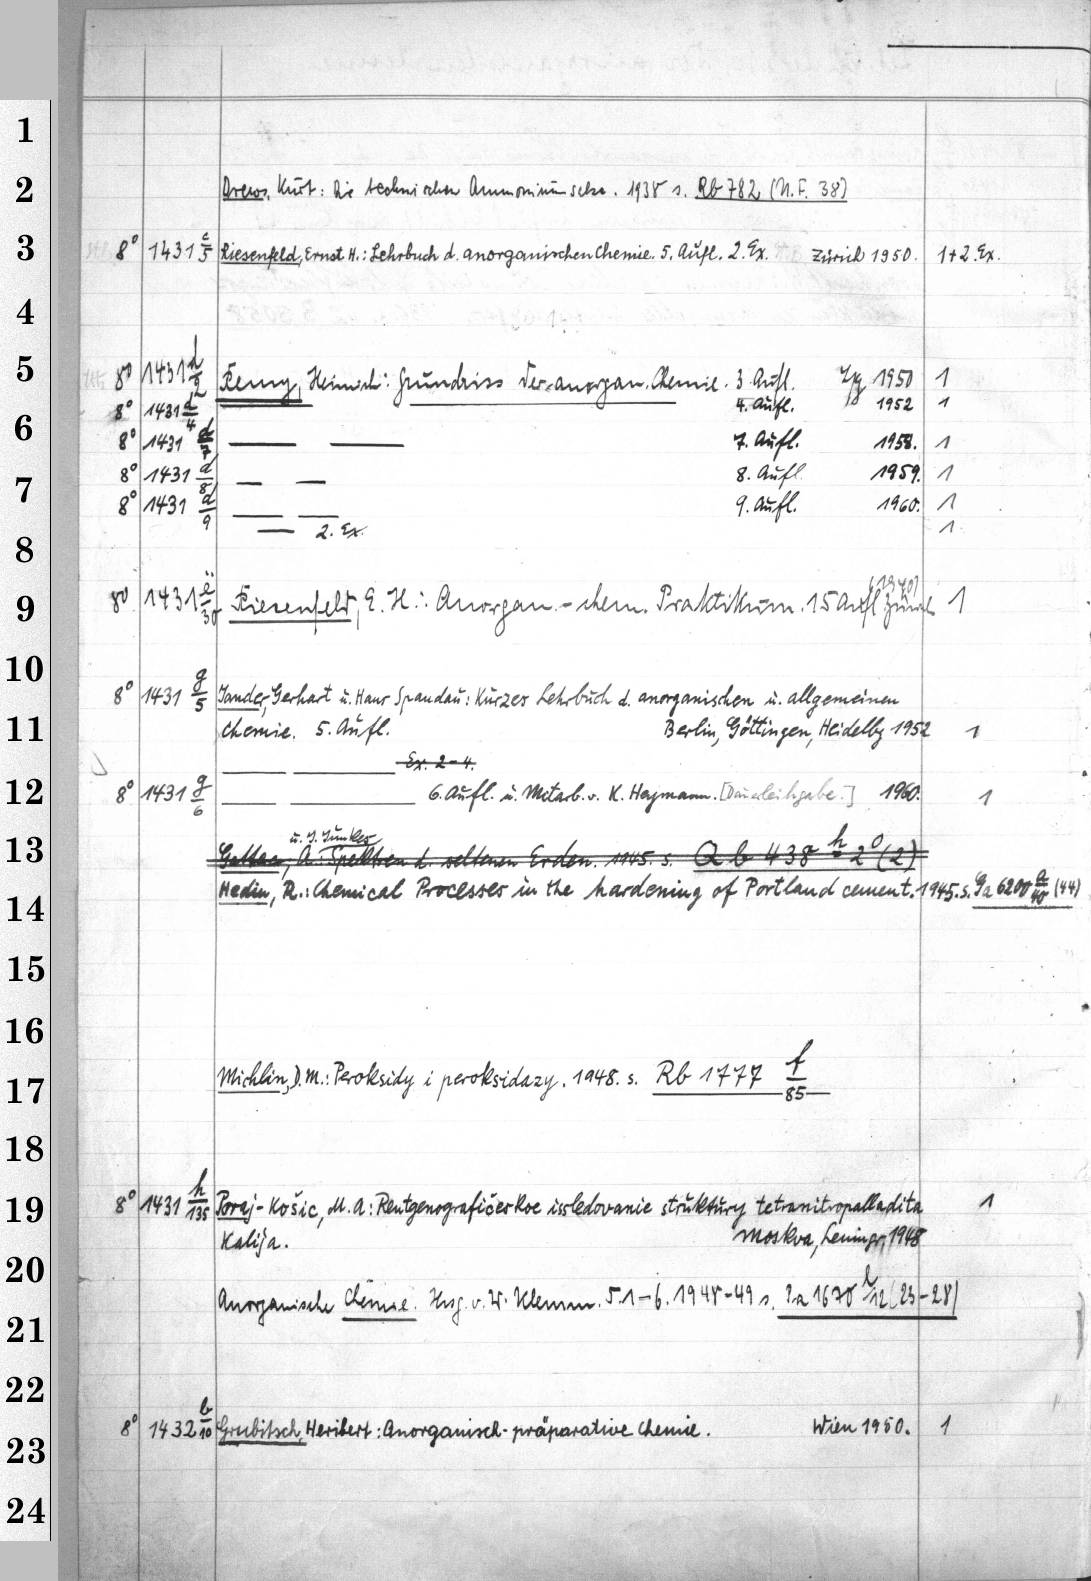 1
2
Drews, Kurt: Die technischen Ammoniumsalze. 1938 s. Rb 782 (N.F. 38)
3
8° 1431 c/5 Riesenfeld, Ernst H.: Lehrbuch d. anorganischen Chemie. 5. Aufl. 2. Ex. Zürich 1950. 1+2. Ex.
4
5
8° 1431 d/2 Remy, Heinrich: Grundriss der anorgan. Chemie. 3 Aufl. Lpg 1950 1
8° 1431 d/4 4. Aufl. 1952 1
6
8° 1431 d/7 — — 7. Aufl. 1958. 1
8° 1431 d/8 — — 8. Aufl. 1959. 1
7
8° 1431 d/9 — — 9. Aufl. 1960. 1
— 2. Ex. 1
8
(1940)
9
8° 1431 e/30 Riesenfeld, E. H.: Anorgan.-chem. Praktikum. 15 Aufl Zürich 1
10
8° 1431 g/5 Jander, Gerhart u. Hans Spandau: Kurzes Lehrbuch d. anorganischen u. allgemeinen
11
Chemie. 5. Aufl. Berlin, Göttingen, Heidelbg 1952 1
— — Ex. 2-4.
12
8° 1431 g/6 — — 6. Aufl. u. Mitarb. v. K. Heymann. [Dauerleihgabe.] 1960. 1
u. J. Junkes
13
Gatterer, A.: Spektren d. seltenen Erden. 1945. s. Qb 438 h - 2° (2)
Hedin, R.: Chemical Processes in the hardening of Portland cement. 1945. s. Ga 6200 a/40 (44)
14
15
16
17
Michlin, D. M.: Peroksidy i peroksidazy. 1948. s. Rb 1777 f/85
18
19
8° 1431 h/135 Poraj-Košic, M. A: Rentgenografičeskoe issledovanie struktury tetranitropalladita 1
Kalija. Moskva, Leningr, 1948
20
Anorganische Chemie. Hrsg. v. W. Klemm. 5.1-6. 1948-49 s. Pa 1670 l/12 (23-28)
21
22
23
8° 1432 b/10 Grubitsch, Heribert: Anorganisch-präparative Chemie. Wien 1950. 1
24